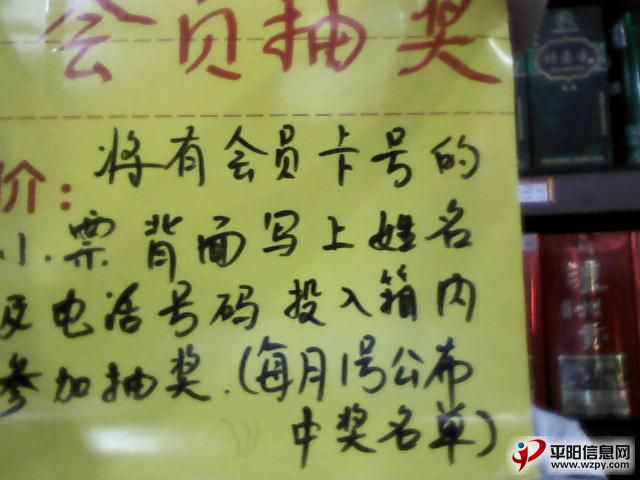 会员抽奖
价：
将有会员卡号的
小票背面写上姓名
及电话号码投入箱内
参加抽奖.(每月1号公布
中奖名单)
泸州
平阳信息网
www.wzpy.com